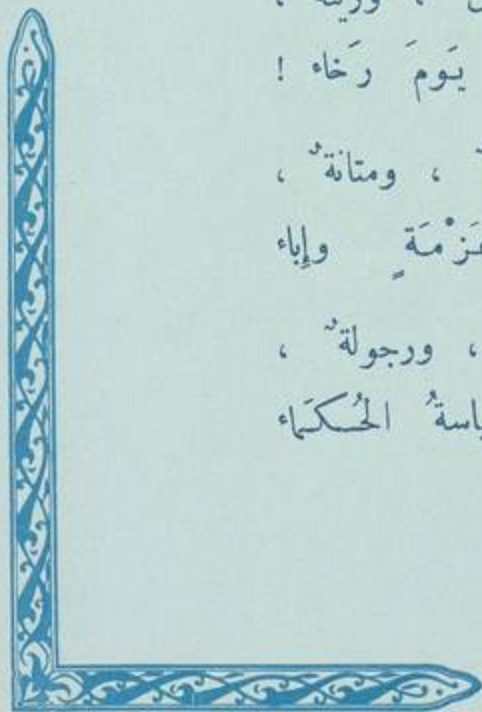 ، وزينة ،
يَومَ رَخاء !
، ومتانةٌ ،
وإِباء
، ورجولةٌ ،
الحُكَمَاء